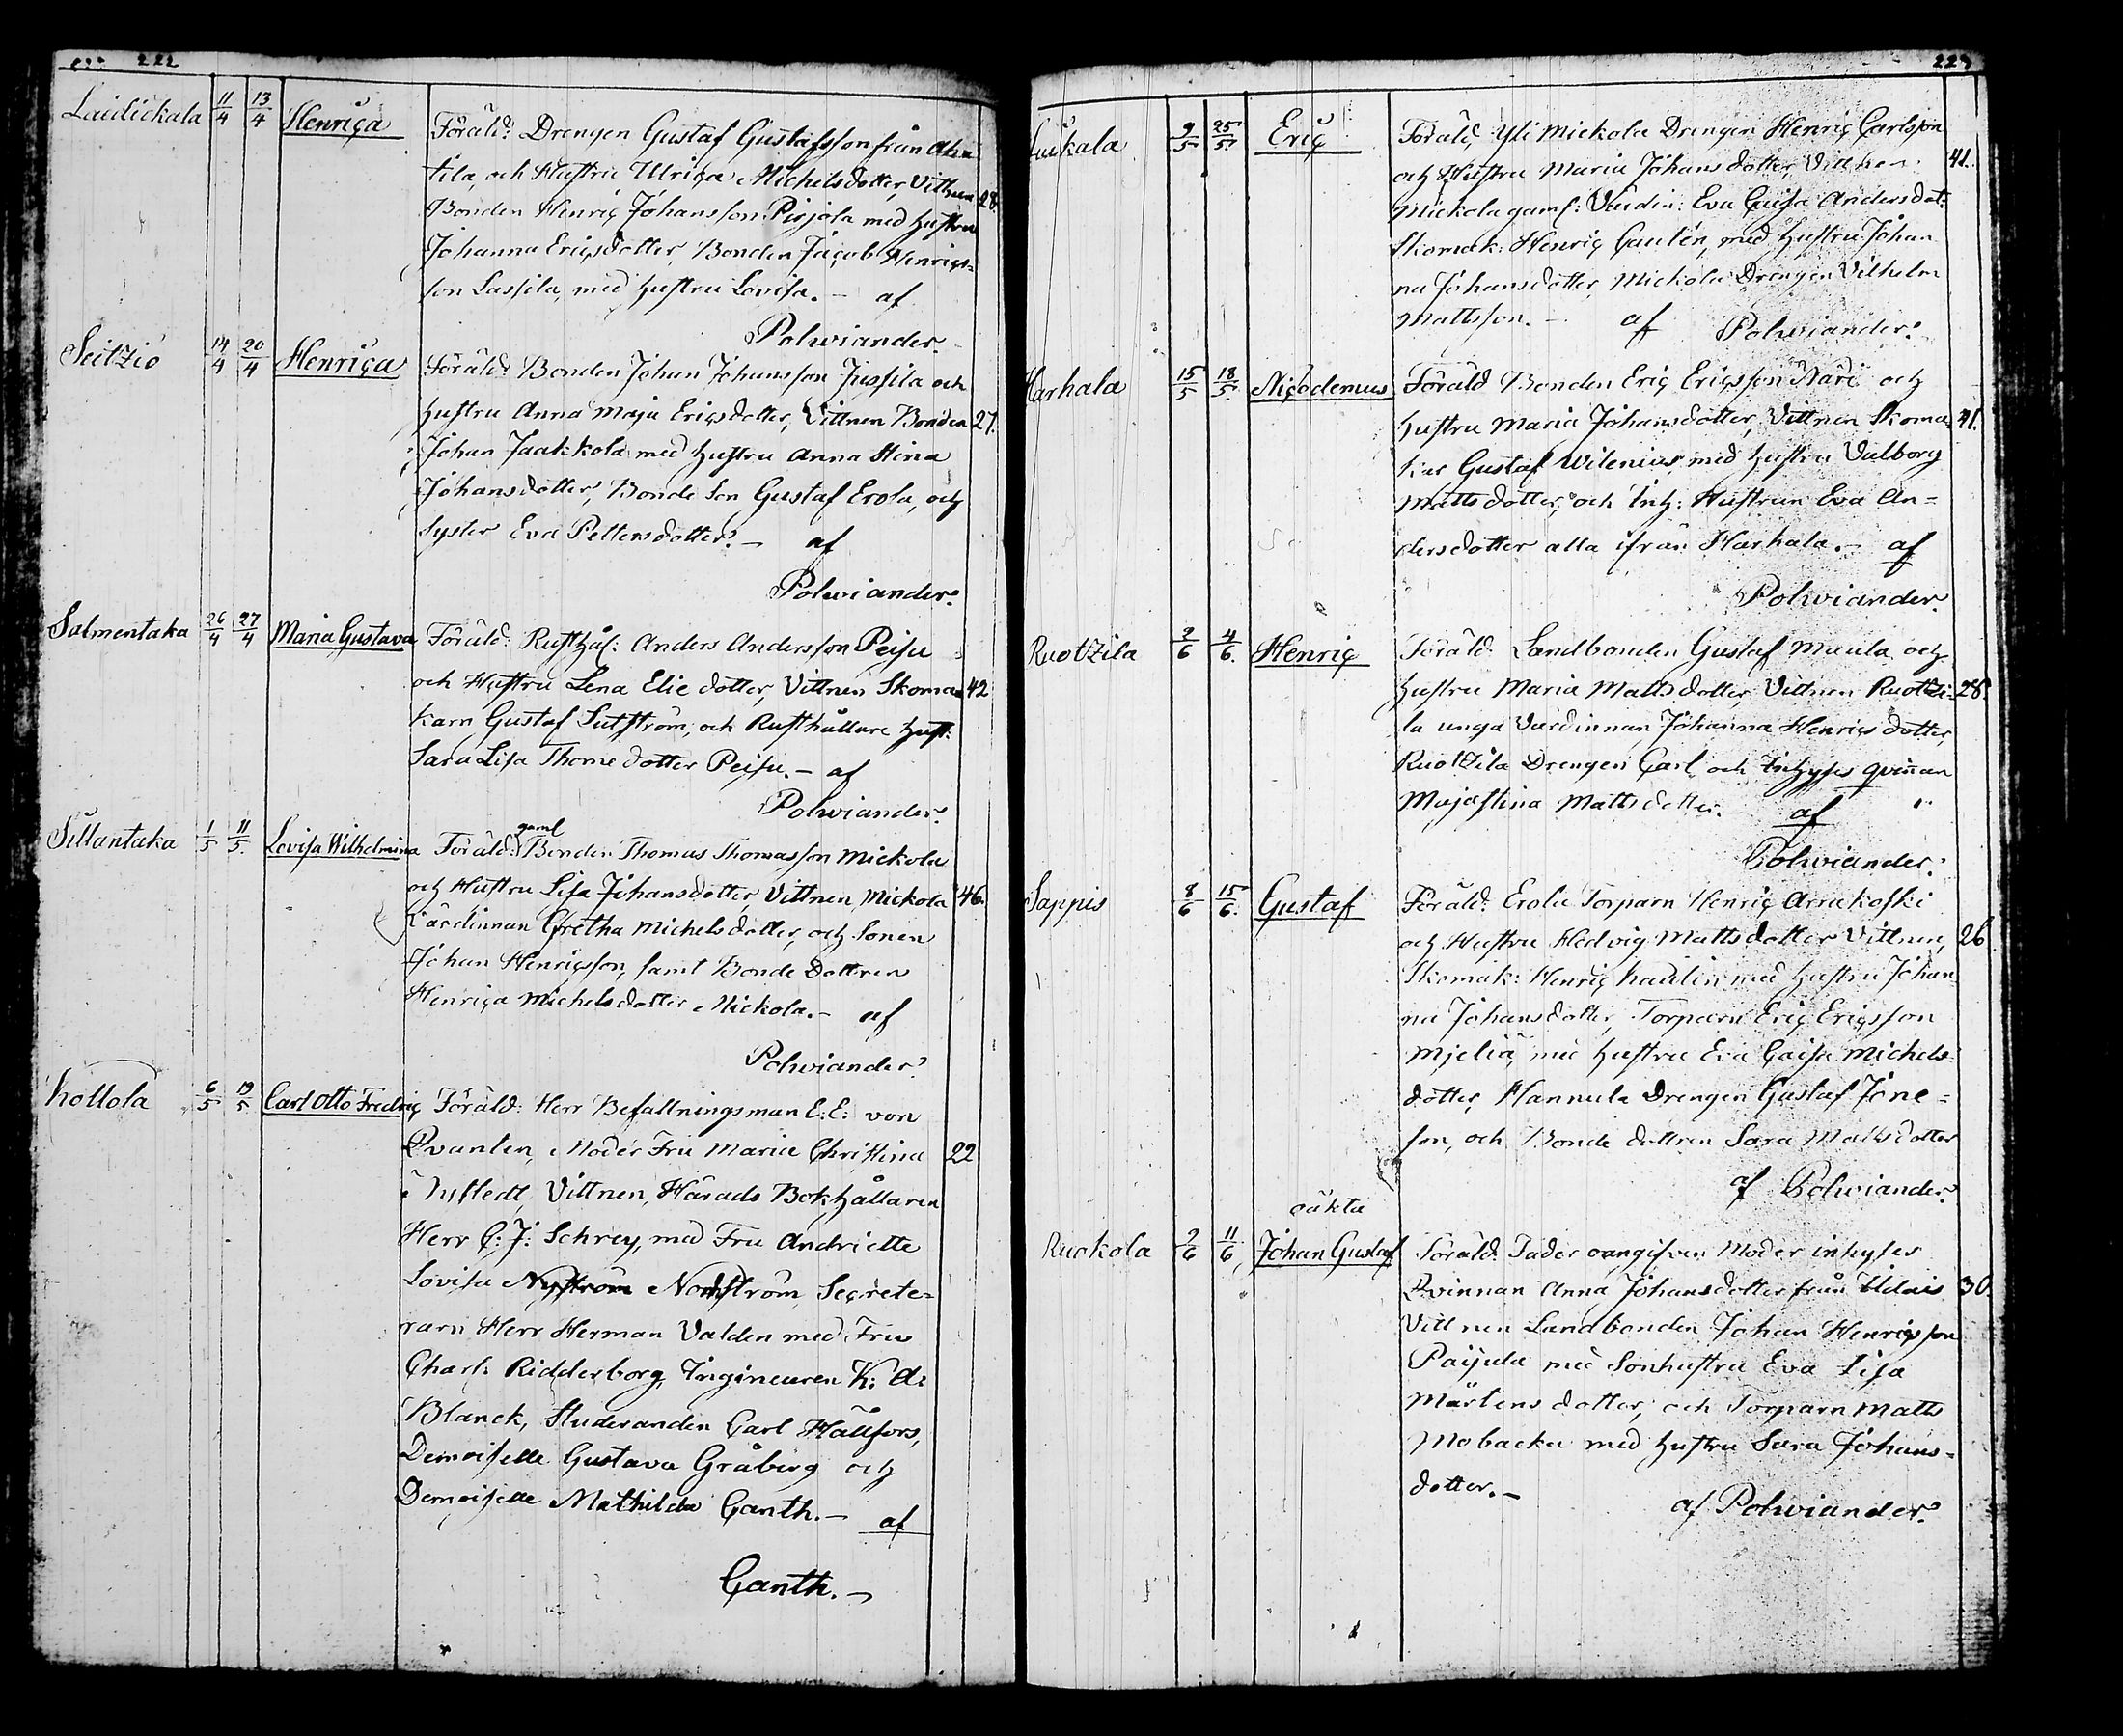 222
Laidickala 11/4 13/4 Henrica Föräld: Drengen Gustaf Gustafsson från Ah=
tila, och Hustru Ulrica Michelsdotter, Vittnen 28.
Bonden Henric Johansson Pirjola med hustru
Johanna Ericsdotter, Bonden Jacob Henrics=
son Lassila, med hustru Lovisa. — af
Polviander.
Seitzio 14/4 20/4 Henrica Föräld: Bonden Johan Johansson Jussila och
hustru Anna Maja Ericsdotter, Vittnen Bonden 27.
Johan Jaakkola med hustru Anna Stina
Johansdotter, Bonde Son Gustaf Erola, och
Syster Eva Pettersdotter. — af
Polviander.
Salmentaka 26/4 27/4 Maria Gustava Föräld: Rusthål: Anders Andersson Peisu
och Hustru Lena Elie dotter, Vittnen Skoma= 42
karn Gustaf Sutström, och Rusthållare hust:
Sara Lisa Thome dotter Peisu. — af
Polviander.
Sillantaka 1/5 11/5. Lovisa Wilhelmina Föräld: gaml Bonden Thomas Thomasson Mickola
och Hustru Lisa Johansdotter, Vittnen, Mickola 46.
Värdinnan Gretha Michelsdotter, och Sonen
Johan Henricsson, samt Bonde Dottren
Henrica Michelsdotter Mickola. — af
Polviander.
Kollola 6/5 19/5 Carl Otto Fredric Föräld: Herr Befallningsman E: E: von
Qvanten, Moder Fru Maria Christina 22
Tystedt, Vittnen, Härads Bokhållaren
Herr C: J: Schrey, med Fru Andriette
Lovisa Nyström Nordström, Secrete=
rarn Herr Herman Valden med Fru
Charl: Ridderborg, Ingineuren K: A:
Blanck, Studeranden Carl Hällfors,
Demoiselle Gustava Gråberg och
Demoiselle Mathilda Ganth. — af
Ganth. —
223
Luikala 9/5 25/5 Eric Föräld, Yli Mickola Drengen Henric Carlsson
och Hustru Maria Johansdotter, Vittnen 41.
Mickola gaml: Värdin: Eva Caisa Andersdot:
Skomak: Henric Gautén, med hustru Johan
na Johansdotter, Mickola Drengen Vilhelm
Mattsson. — af Polviander.
Harhala 15/5 18/5 Nicodemus Föräld Bonden Eric Ericsson Näri och
hustru Maria Johansdotter, Vittnen Skoma= 41.
kar Gustaf Wilenius med hustru Valborg
Mattsdotter, och Inh: Hustrun Eva An=
dersdotter alla ifrån Harhala. — af
Polviander.
Ruotzila 2/6 4/6. Henric Föräld: Landbonden Gustaf Maula och
hustru Maria Mattsdotter, Vittnen Ruotzi= 28.
la unga Värdinnan Johanna Henricsdotter,
Ruotzila Drengen Carl, och Inhyses qvinnan
Majastina Mattsdotter. af
Polviander.
Sappis 8/6 15/6. Gustaf Föräld: Erola Torparn Henric Arrakoski
och Hustru Hedvig Mattsdotter Vittnen, 26
Skomak: Henric hautin med hustru Johan
na Johansdotter, Torparn Eric Ericsson
Mjeliä, med hustru Eva Caisa Michels
dotter, Hannula Drengen Gustaf Jöne=
son, och Bonde dottren Sara Mattsdotter
af Polviander.
oäkta
Ruokola 9/6 11/6. Johan Gustaf Föräld: Fader oangifven Moder inhyses
Qvinnan Anna Johansdotter från Udnis 30.
Vittnen Landbonden Johan Henricsson
Paijula med Sonhustru Eva Lisa
Mårtensdotter, och Torparn Matts
Mobacka med hustru Sara Johans=
dotter. —
af Polviander.